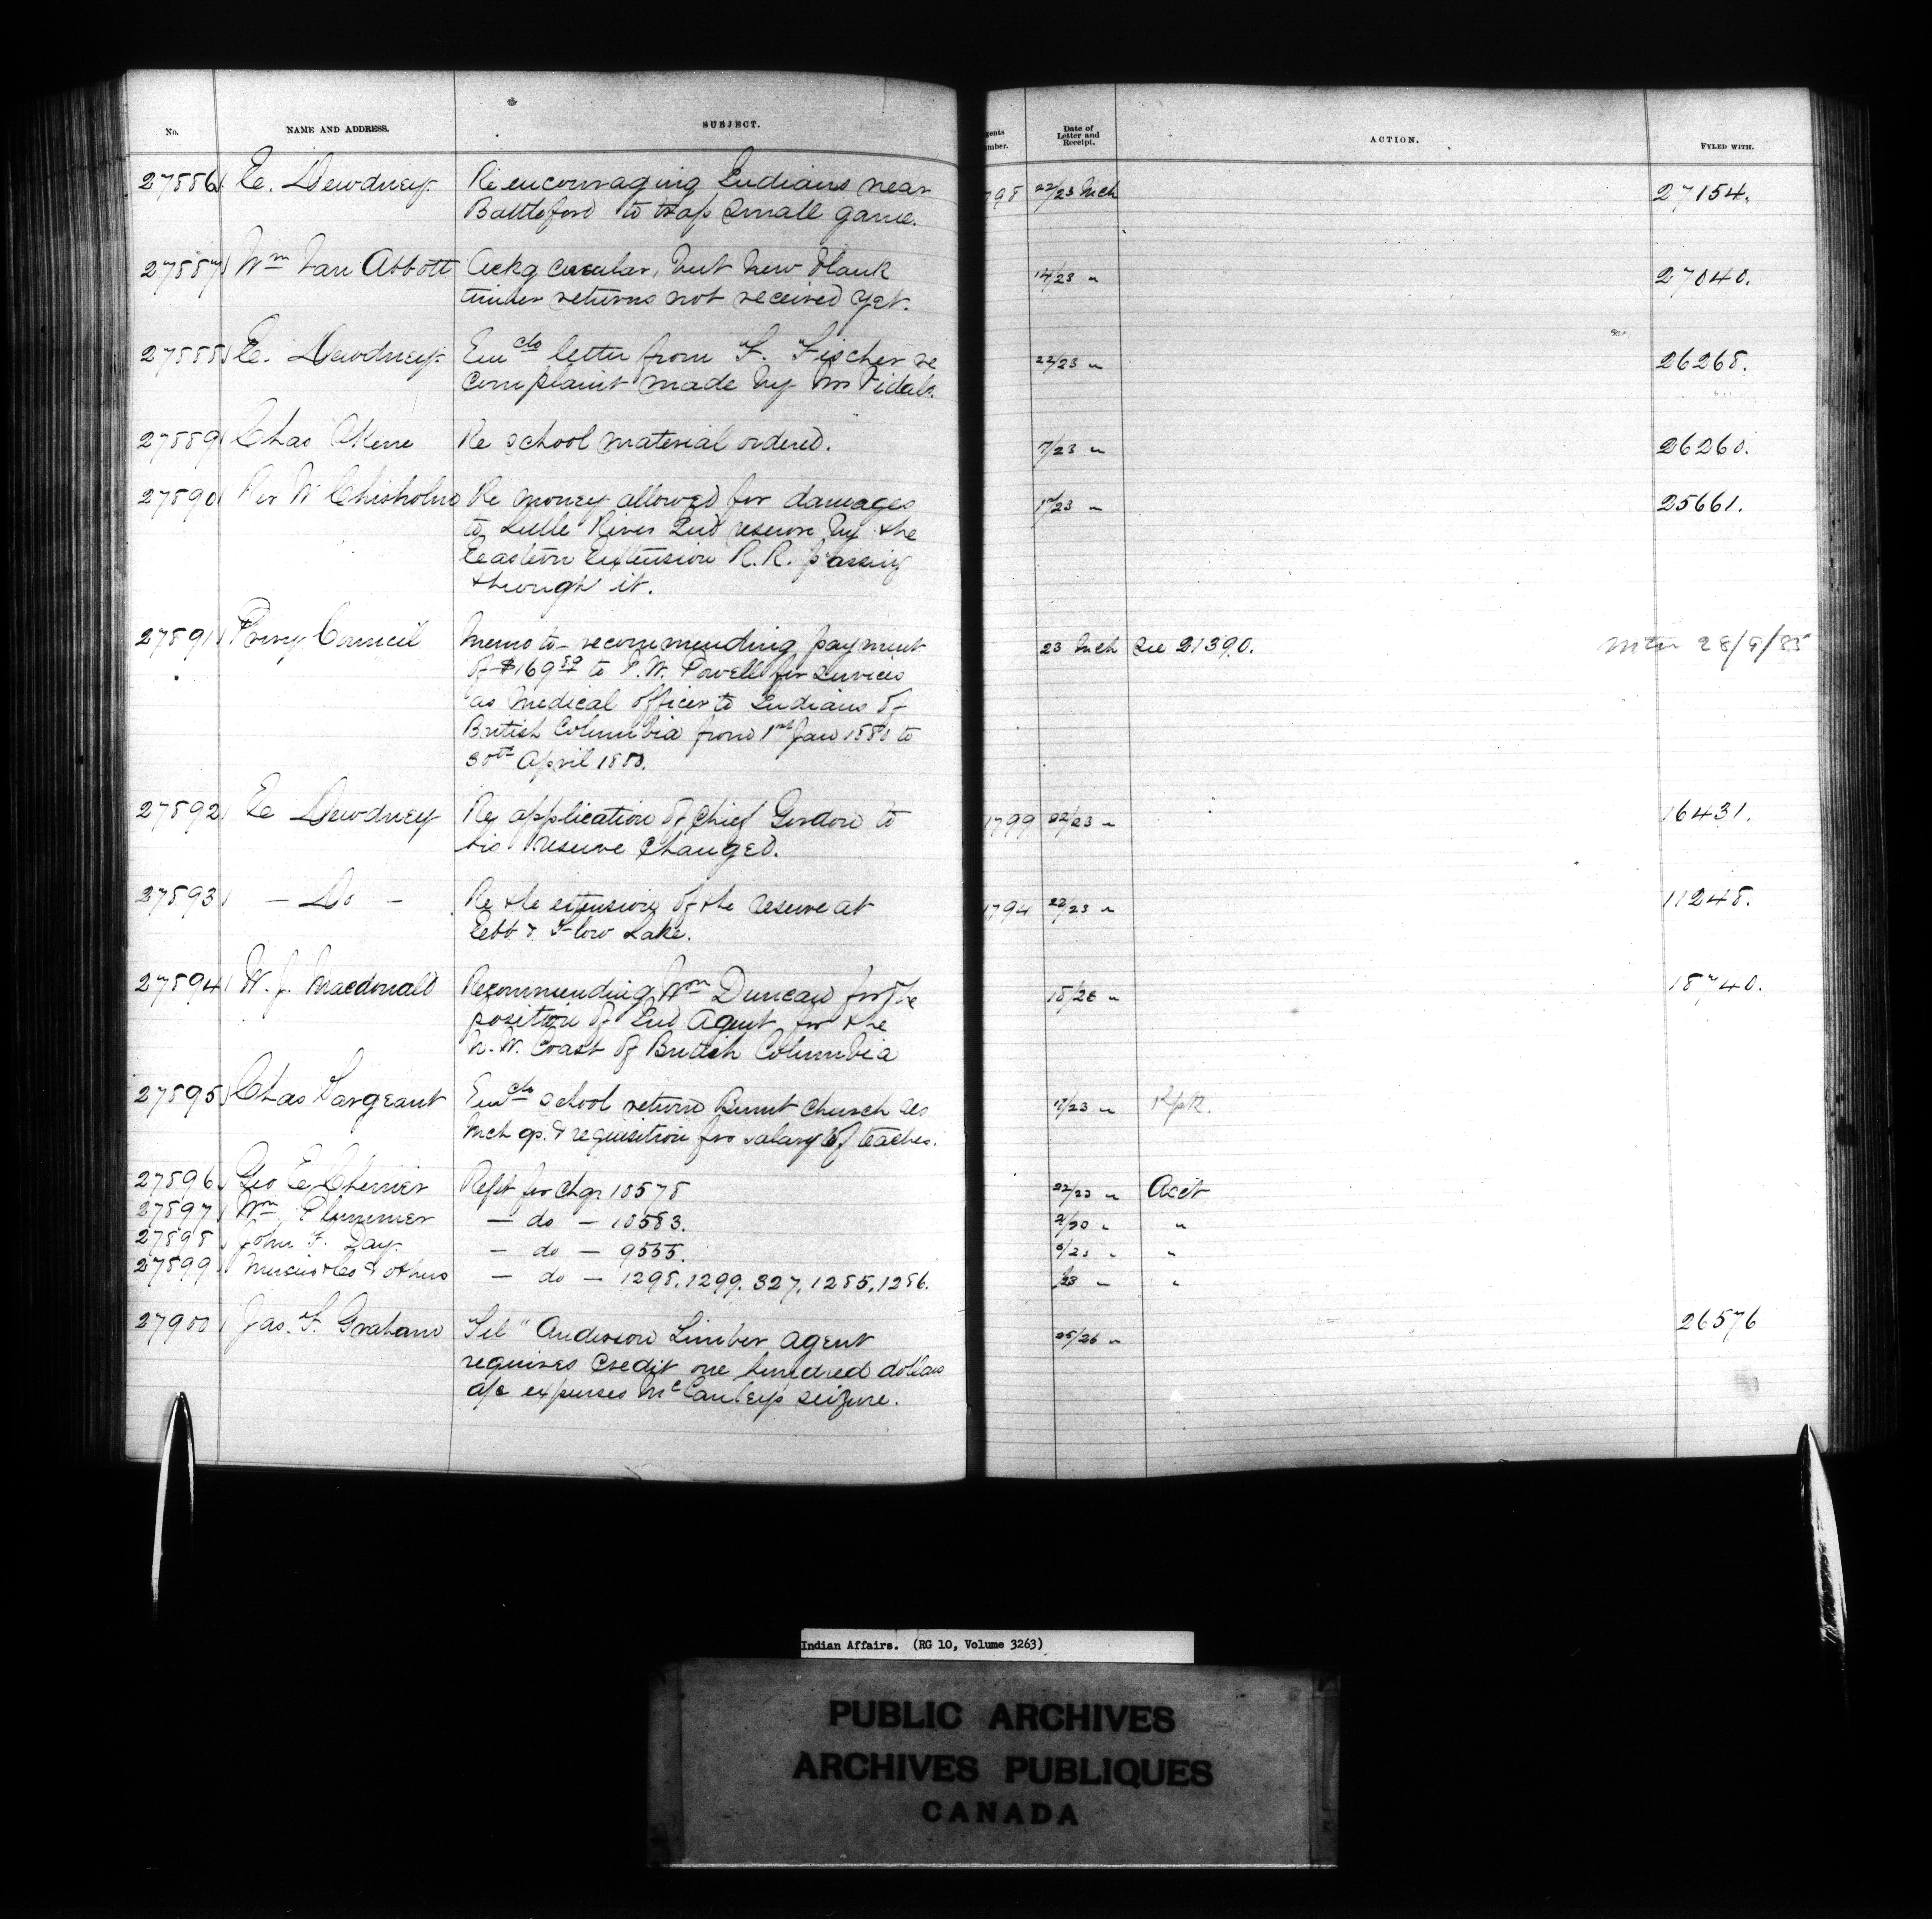 No. NAME AND ADDRESS. SUBJECT. gents umber. Date of Letter and Receipt. ACTION. FYLED WITH.
27886 E. Dewdney Re encouraging Indians near 798 22/23 Mch 27154.
Battleford to trap small game.
27887 Wm Van Abbott Ackg circular, but new blank 14/23 " 27040.
timber returns not received yet.
27888 E. Dewdney Encls letter from F. Fischer re 22/23 " 26268.
complaint made by Mr Vidal.
27889 Chas Re school material ordered. 7/23 " 26260.
27890 W Chisholm Re money allowed for damages /23 " 25661.
to River Ind reserve by the
Eastern Extension R.R. passing
through it.
27891 Privy Council Memo to recommending payment 23 Mch See 21390. 28/9/85
of $169 to I.W. Powell for services
as Medical Officer to Indians of
British Columbia from 1st Jan 1880 to
30th April 1880.
27892 E Dewdney Re application of Chief Gordon to 1799 22/23 " 16431.
his reserve changed.
27893 — Do — Re the extension of the reserve at 1794 22/23 " 11248.
Ebb & Flow Lake.
27894 W. J. Macdonald Recommending Wm Duncan for the 18/26 " 18740.
position of Ind Agent for the
N. W. Coast of British Columbia
27895 Chas Sargeant Encls school return Burnt Church
Mch qr. & requisition for salary of teacher. 17/23 "
27896 Geo E Cherrier Rept for Chq. 10578 22/23 " Acct
27897 Wm Plummer — do — 10583. /20 " "
27898 John F. Day — do — 9555. /23 " "
27899 & others — do — 1298, 1299, 327, 1285, 1286. /23 " "
27900 Jas. F. Graham "Tel" Anderson Timber agent 25/26 " 26576
requires credit one hundred dollars
a/c expenses McCauley's seizure.
Indian Affairs. (RG 10, Volume 3263)
PUBLIC ARCHIVES
ARCHIVES PUBLIQUES
CANADA